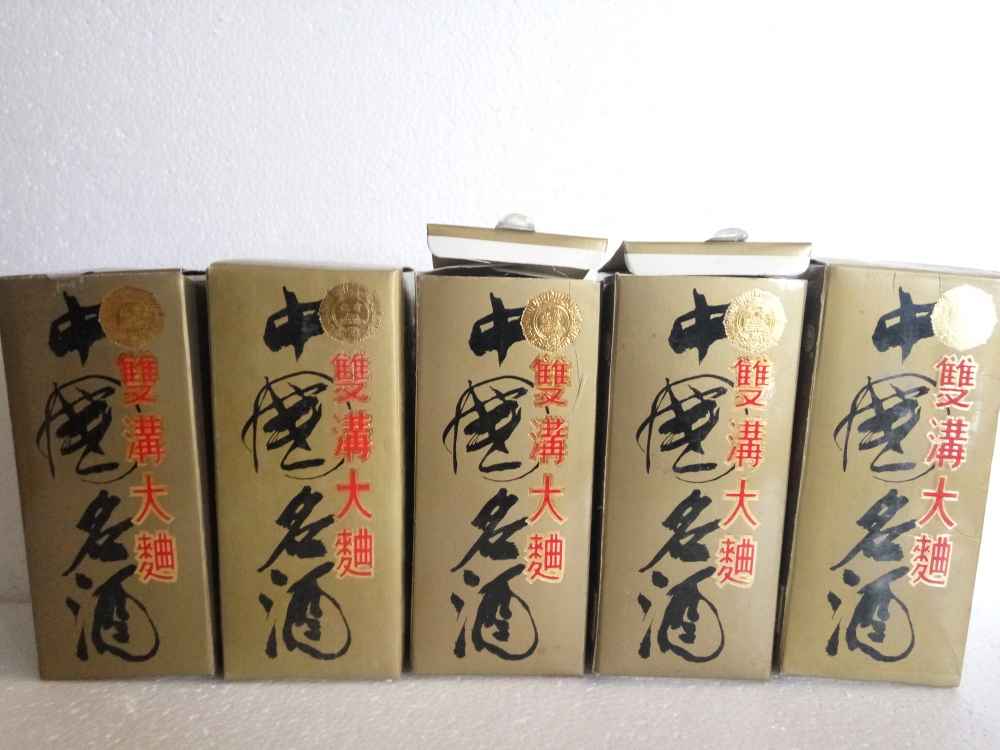 中國名酒
雙溝大麯
中國名酒
雙溝大麯
中國名酒
雙溝大麯
中國名酒
雙溝大麯
中國名酒
雙溝大麯